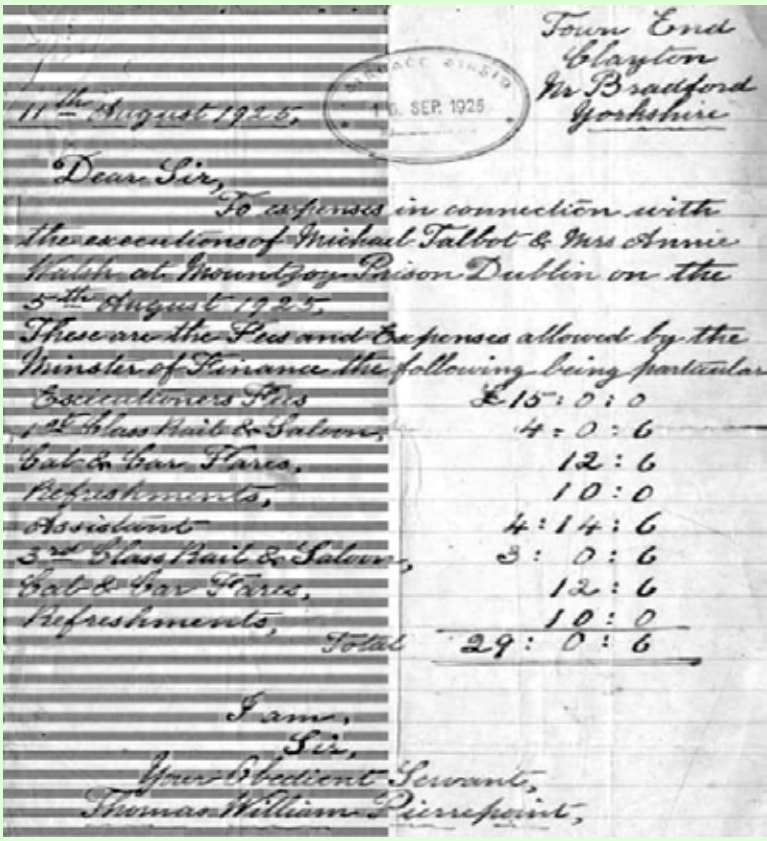 Town End
Clayton
Nr Bradford
Yorkshire
16. SEP. 1925
11th August 1925,
Dear Sir,
To expenses in connection with
the executions of Michael Talbot & Mrs Annie
Walsh at Mountjoy Prison Dublin on the
5th August 1925,
These are the Fees and Expenses allowed by the
Minster of Finance the following being particular
Executioners Fees £15:0:0
1st Class Rail & Saloon, 4=0:6
Cab & Car Fares, 12:6
Refreshments, 10:0
Assistant 4:14:6
3rd Class Rail & Saloon, 3:0:6
Cab & Car Fares, 12:6
Refreshments, 10:0
Total 29:0:6
I am,
Sir,
Your Obedient Servant,
Thomas William Pierrepoint,